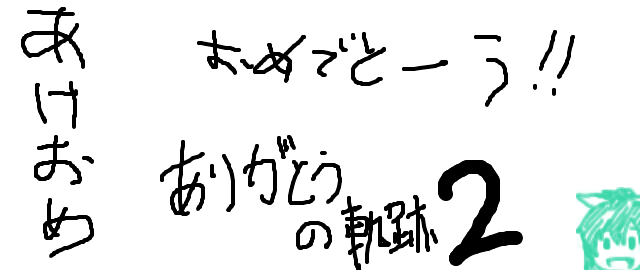 あけおめ
おめでとーう!!
ありがとう
の軌跡2